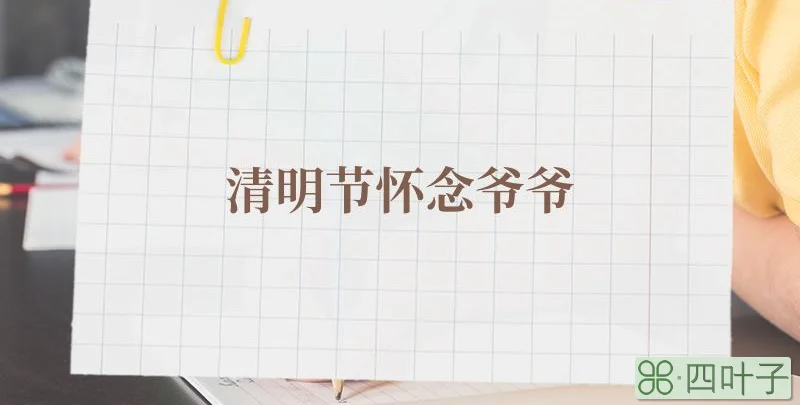 清明节怀念爷爷
⌘·四叶子